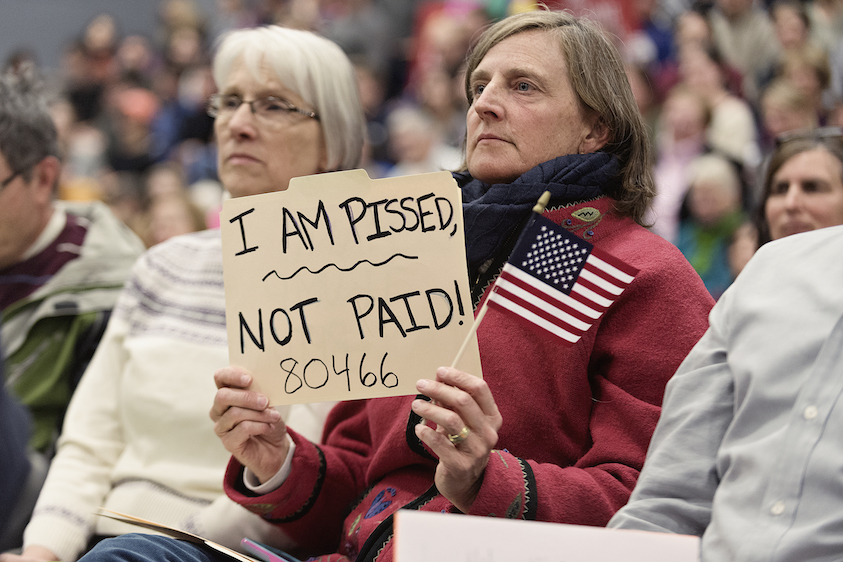 I AM PISSED,
NOT PAID!
80466